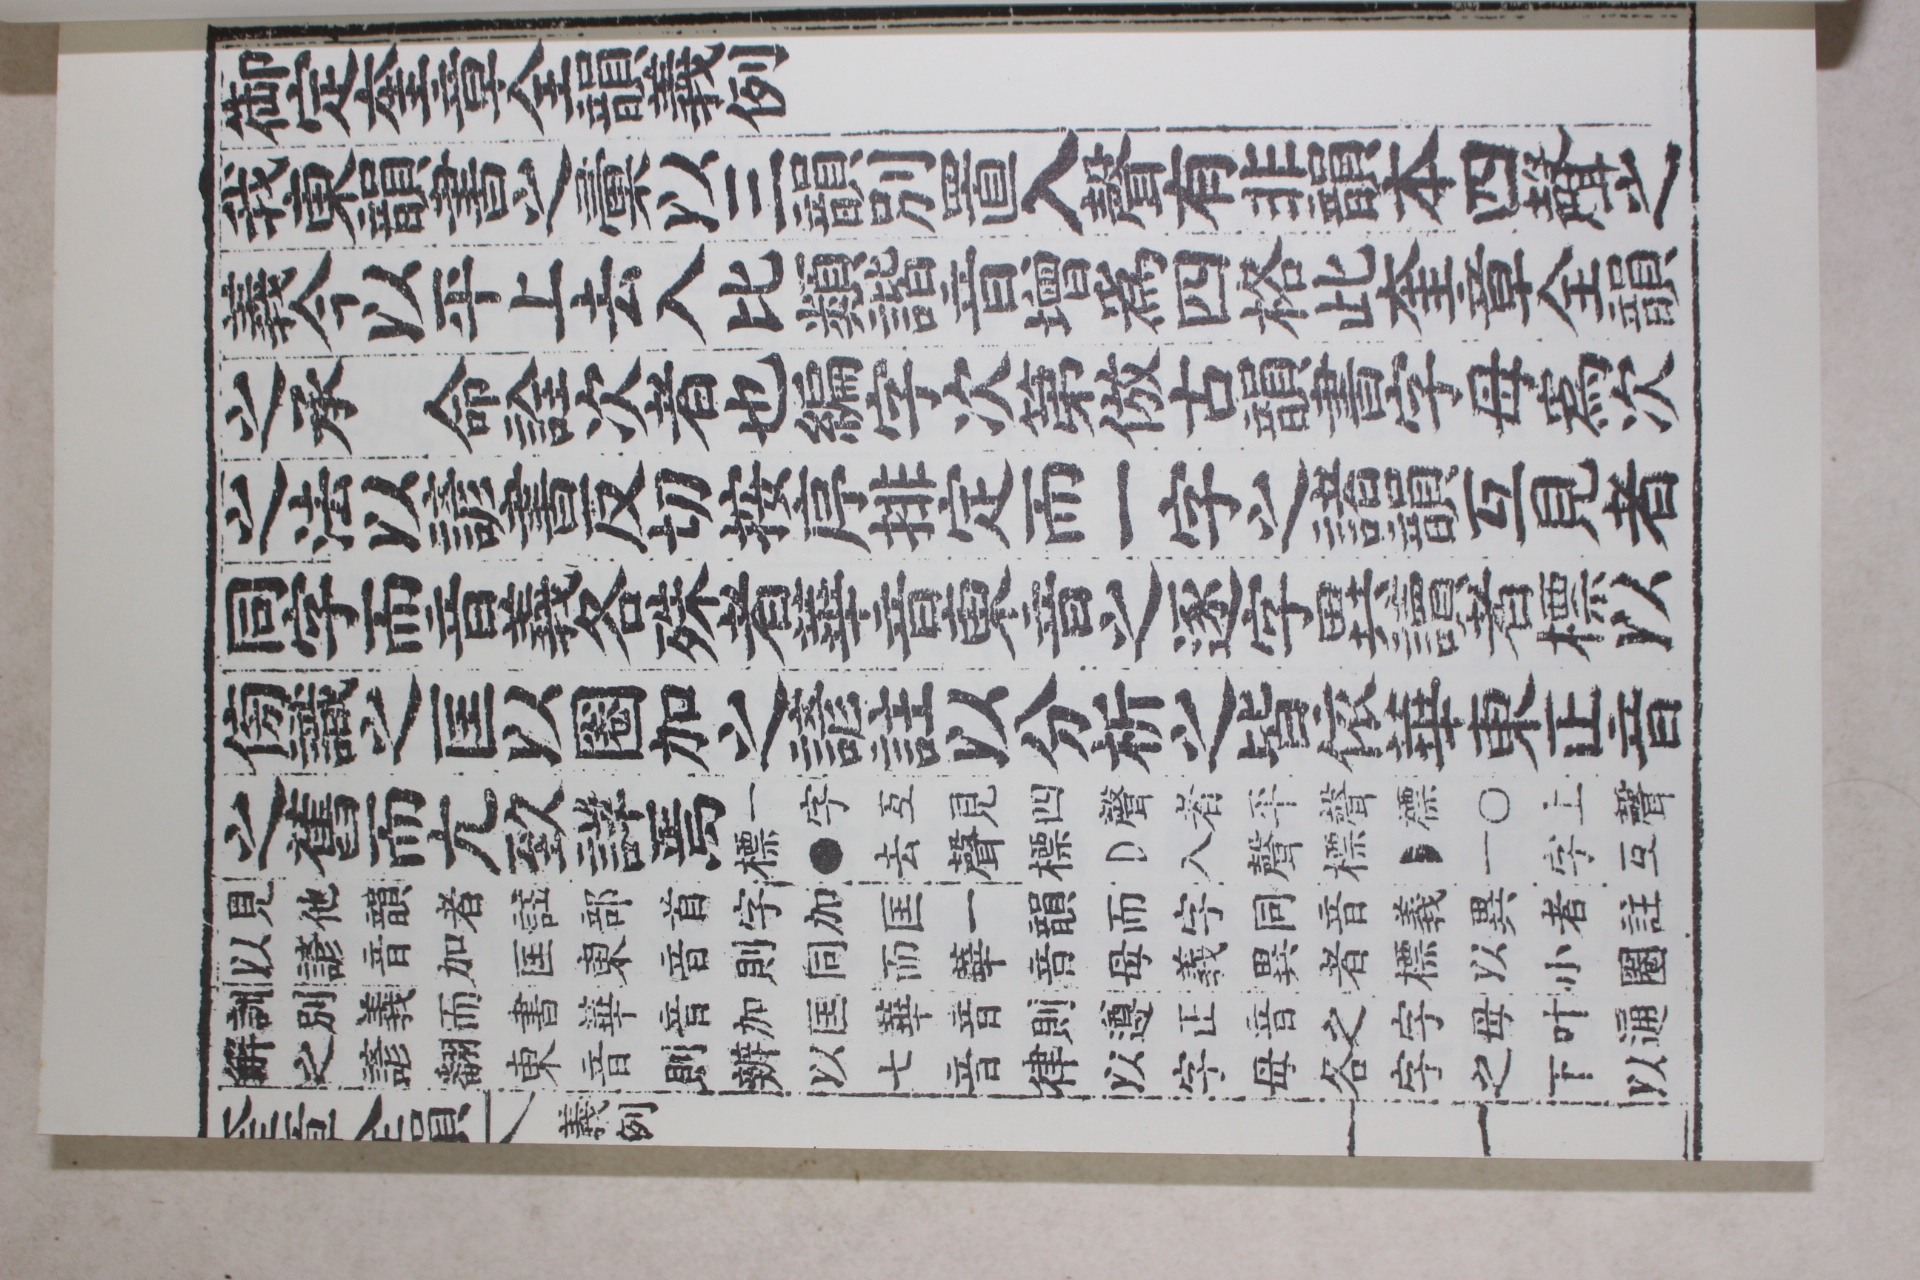 御定奎章全韻義例
我東韻書之彙以三韻別置入聲有非韻本四聲之
義今以平上去入比類諧音增爲四格此奎章全韻
之承 命詮次者也編字次第倣古韻書字母爲次
之法以諺書反切按序排定而一字之諸韻互見者
同字而音義各殊者華音東音之逐字異讀者標以
傍識之匡以圈加之諺註以分析之皆依華東正音
之舊而尤致詳焉
一字互見四聲者平聲標○上聲
標●去聲標D入聲標◗一字互
見他韻者註部首字加匡一韻而字同音義異者註
以諺音加匡東音則同而華音母義異者標以小圈
訓別義而書華音加匡華音則遵正音之字字母叶通
解之諺翻東音則辨以七音律以字母各字之下以
奎章全韻 義例 一